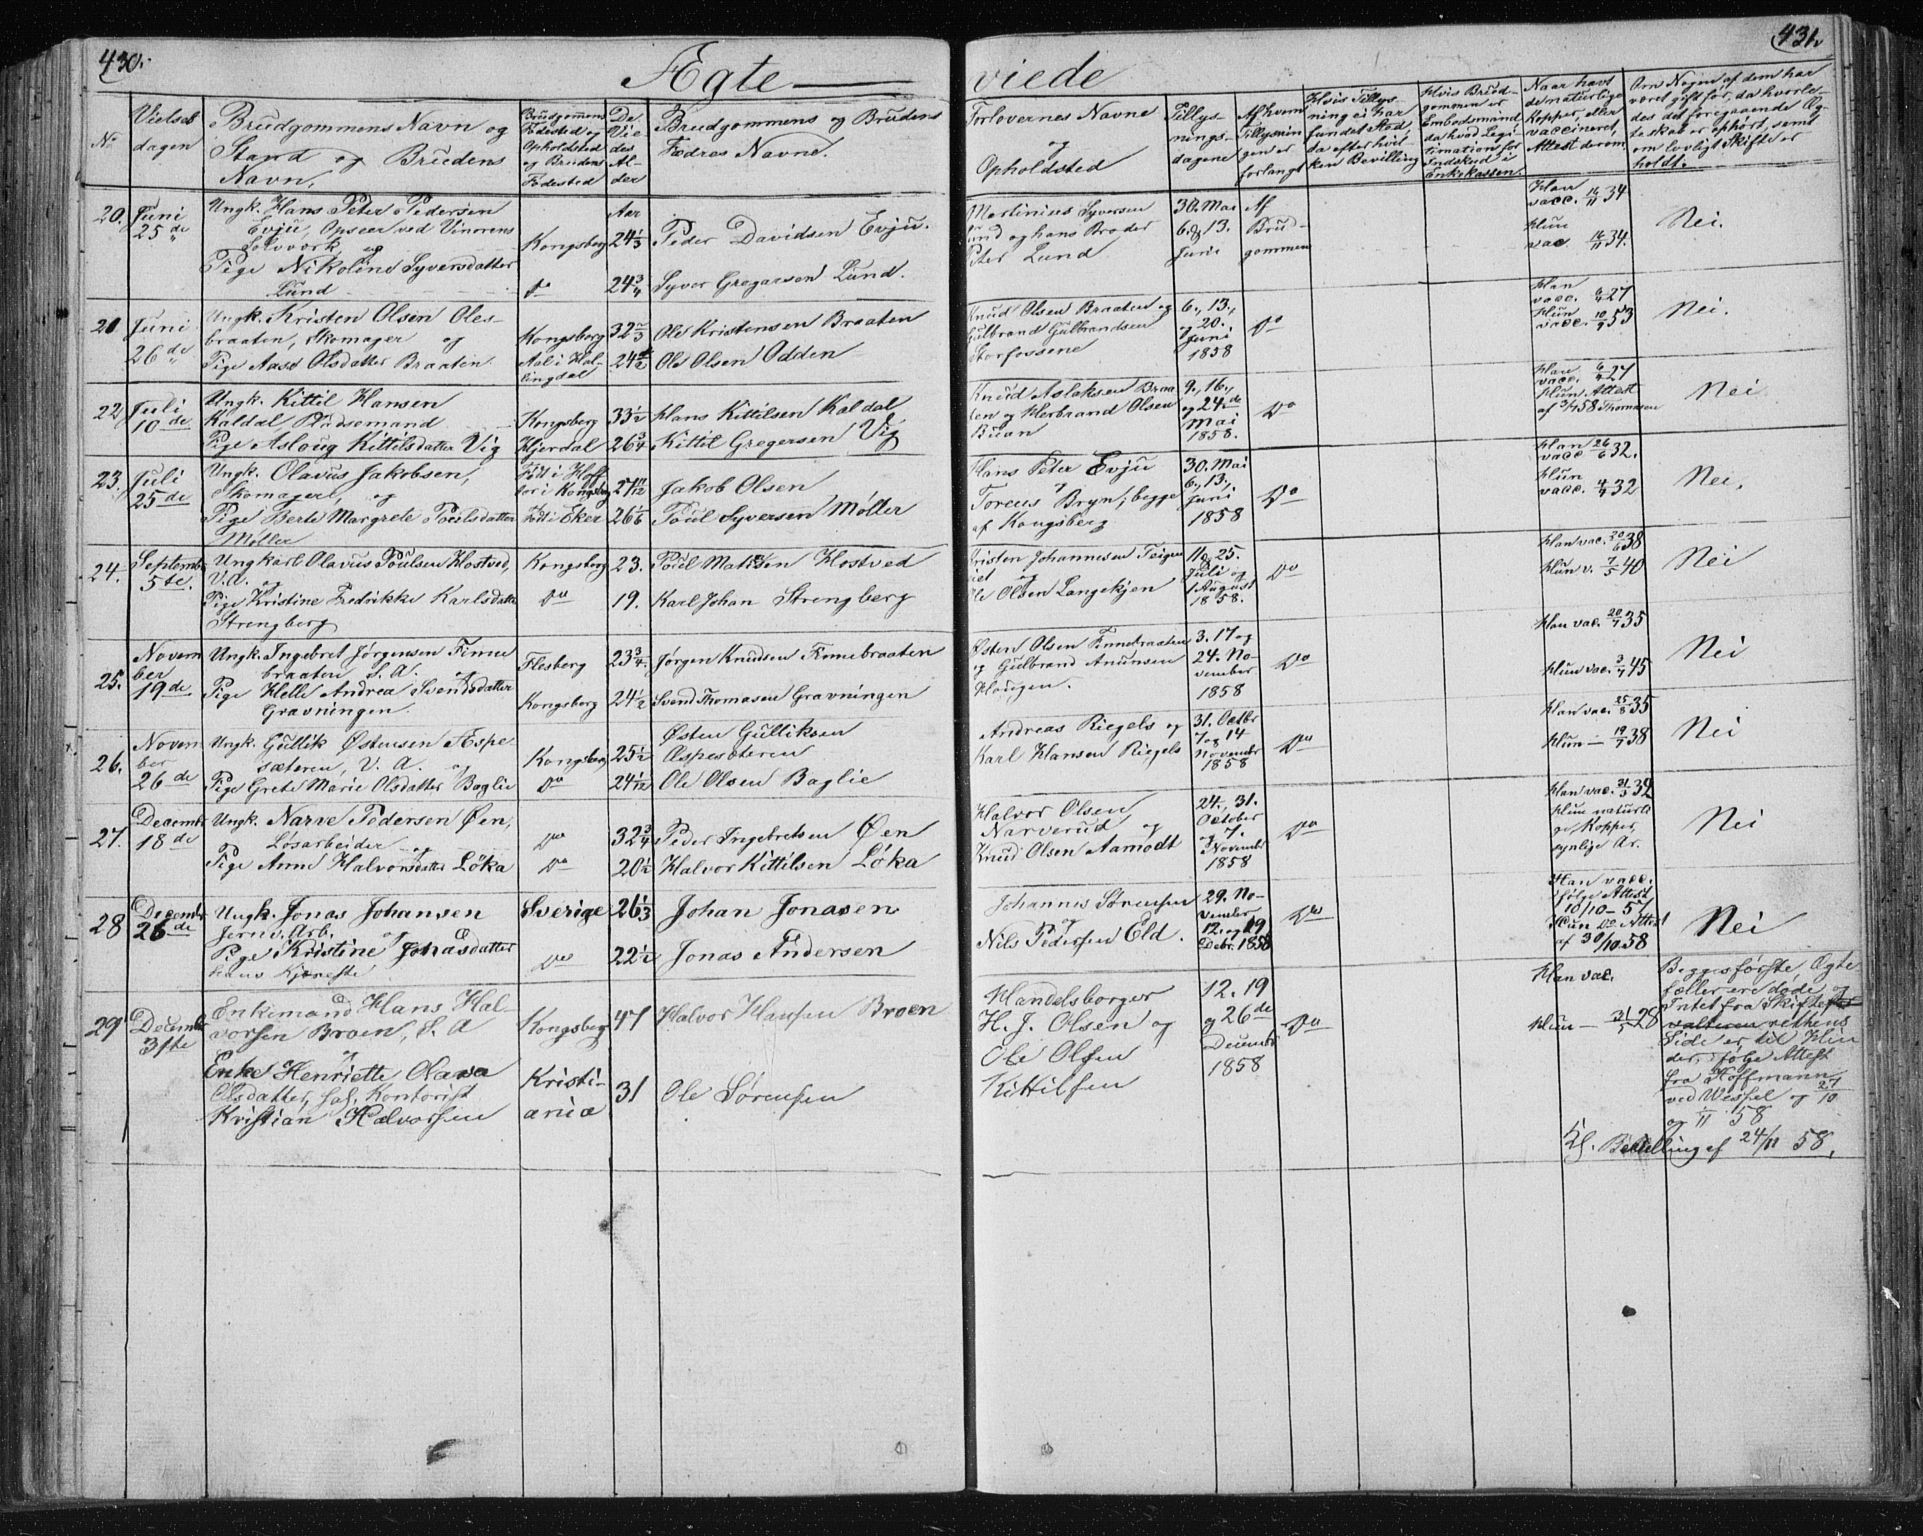 430.
431.
Ægte
viede
No
Vielses
dagen
Brudgommens Navn og
Stand og Brudens
Navn,
Brudgommens
Fødested og
Opholdsted
og Brudens
Fødested
De
Vie
des
Al-
der
Brudgommens og Brudens
Fædres Navne.
Forlovernes Navne
og
Opholdsted
Tillys-
nings-
dagene
Af hvem
Tillysnin
gen er
forlangt
Hvis Tillys-
ning ei har
fundet Sted,
da efter hvil-
ken Bevilling
Hvis Brud-
gommen er
Embedsmand,
da hvad Legi-
timation for
Indskud i
Enkekassen.
Naar havt
de naturlige
Kopper, eller
vaccineret,
Attest derom
Om Nogen af dem har
været gift før, da hvorle-
des det foregaaende Æg-
teskab er ophørt, samt
om lovligt Skifte er
holdt.
20.
Juni
25de
Ungk. Hans Peter Pedersen
Evju, Opseer ved Vinorens
Sølvværk og
Pige Nikoline Syversdatter
Lund
Kongsberg
Do
Aar
24 1/3
24 3/4
Peder Davidsen Evju.
Syver Gregarsen Lund.
Martinius Syversen
Lund og hans Broder
Peter Lund
30. Mai
6. & 13.
Juni
Af
Brud-
gommen
Han
vacc. 14/11 34
Hun
vac 14/11 34.
Nei.
21
Juni
26de
Ungk. Kristen Olsen Oles-
braaten, Skomager og
Pige Aase Olsdatter Braaten
Kongsberg
Aal i Hal-
lingdal
32 2/3
24 1/2
Ole Kristensen Braaten
Ole Olsen Odden
Knud Olsen Braaten og
Gulbrand Gulbrandsen
Storfossene
6., 13.,
og 20.
Juni
1858
Do
Han
vacc. 6/7 27
Hun
vacc. 10/9 53
Nei.
22
Juli
10de
Ungk. Kittil Hansen
Kaldal Pladsemand
Pige Aslaug Kittilsdatter Vig
Kongsberg
Hjerdal
33 1/2
26 3/4
Hans Kittilsen Kaldal
Kittil Gregersen Vig
Knud Aslaksen Braa
ten og Herbrand Olsen
Buan
9., 16.,
og 24de
Mai
1858.
Do
Han
vacc. 6/7 27
Hun Attest
af 3/7 58 Thomasen
Nei
23.
Juli
25de
Ungk. Olavus Jakobsen,
Skomager, og
Pige Berte Margrete Poulsdatter
Møller
Fød i Hoff
bor i Kongsberg
Fød i Eker
27 11/12
26 1/6
Jakob Olsen
Poul Syversen Møller
Hans Peter Evju
og
Toreus Bryn, begge
af Kongsberg
30. Mai
6., 13.,
Juni
1858
Do
Han 26/6 32.
vacc
Hun
vacc. 4/7 32
Nei.
24.
Septembr
5te.
Ungkarl Olavus Poulsen Hostved,
V.A. og
Pige Kristine Fredrikke Karlsdatter
Strengberg
Kongsberg
Do
23.
19.
Poul Matisen Hostved
Karl Johan Strengberg
Kristen Johannesen Teigen
og
Ole Olsen Langekjen
11, 25.
Juli og
1 August
1858.
Do
Han vac. 20/6 38
Hun v. 7/5 40
Nei
25.
Novem
ber
19de
Ungk. Ingebret Jørgensen Finne
braaten S.A. og
Pige Helle Andrea Svendsdatter
Gravningen
Flesberg
Kongsberg
23 3/4.
24 1/2
Jørgen Knudsen Finnebraaten
Svend Thomasen Gravningen
Østen Olsen Finnebraaten
og Gulbrand Anunsen
Haugen.
3. 17 og
24. No-
vember
1858
Do
Han vac. 20/7 35
Hun vac. 3/7 45
Nei
26.
Novem
ber
26de
Ungk. Gullik Østensen Aspe-
sæteren, V.A. og
Pige Grete Marie Olsdatter Baglie
Kongsberg
Do
25 1/2
24 1/12
Østen Gulliksen
Aspesæteren
Ole Olsen Baglie
Andreas Riegels og
Karl Hansen Riegels
31. Octbr
7 og 14
November
1858
Do
Han vac. 25/8 35
Hun — 19/7 38
Nei
27.
Decembr
18de
Ungk. Narve Pedersen Øen,
Løsarbeider og
Pige Anne Halvorsdatter Løka
Do
Do
32 3/4
20 1/2
Peder Ingebretsen Øen
Halvor Kittilsen Løka
Halvor Olsen
Narverud og
Knud Olsen Aamodt
24., 31.
October
og 7.
Novembr
1858
Do
Han vac. 31/5 32
Hun naturli
ge Kopper,
synlige Ar.
Nei
28
Decembr
26de
Ungk. Jonas Johansen
Jernv. Arb. og
Pige Kristine Jonasdatter
hans Kjæreste
Sverige
Do
26 1/3
22 1/2
Johan Jonasen
Jonas Andersen
Johannes Sørensen
og
Nils Pedersen Eld.
29. No-
vember,
12. og 19
Decbr. 1858
Do
Han vacc.
ifølge Attest
10/10 - 57
Hun Do Attest
af 30/10 58
Nei
29
Decembr
31te
Enkemand Hans Hal-
vorsen Broen, S.A
og
Enke Henriette Olava
Olsdatter, sal. Kontorist
Kristian Halvorsen
Kongsberg
Kristi-
ania
47
31
Halvor Hansen Broen
Ole Sørensen
Handelsborger
H. J. Olsen og
Ole Olsen
Kittilsen
12. 19
og 26de
Decembr
1858
Do
Han vac.
Hun — 31/5 28
Begges første Ægte
fæller ere døde, og
Intet fra Skifte
rettens
Side er til Hin
der, ifølge Attest
fra Hoffmann
ved Wessel og 27/10
og 1/11 58
Kgl. Bevilling af 24/11 58.